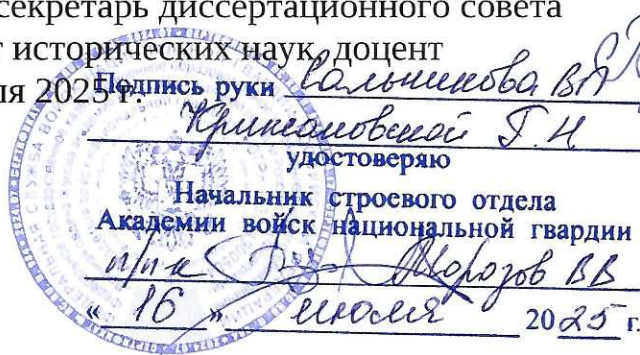 секретарь диссертационного совета
т исторических наук, доцент
ля 2025 г.
Подпись руки Сальникова ВП
Крижановской Г.Н
удостоверяю
Начальник строевого отдела
Академии войск национальной гвардии
п/п-к Морозов ВВ
«16» июля 2025 г.